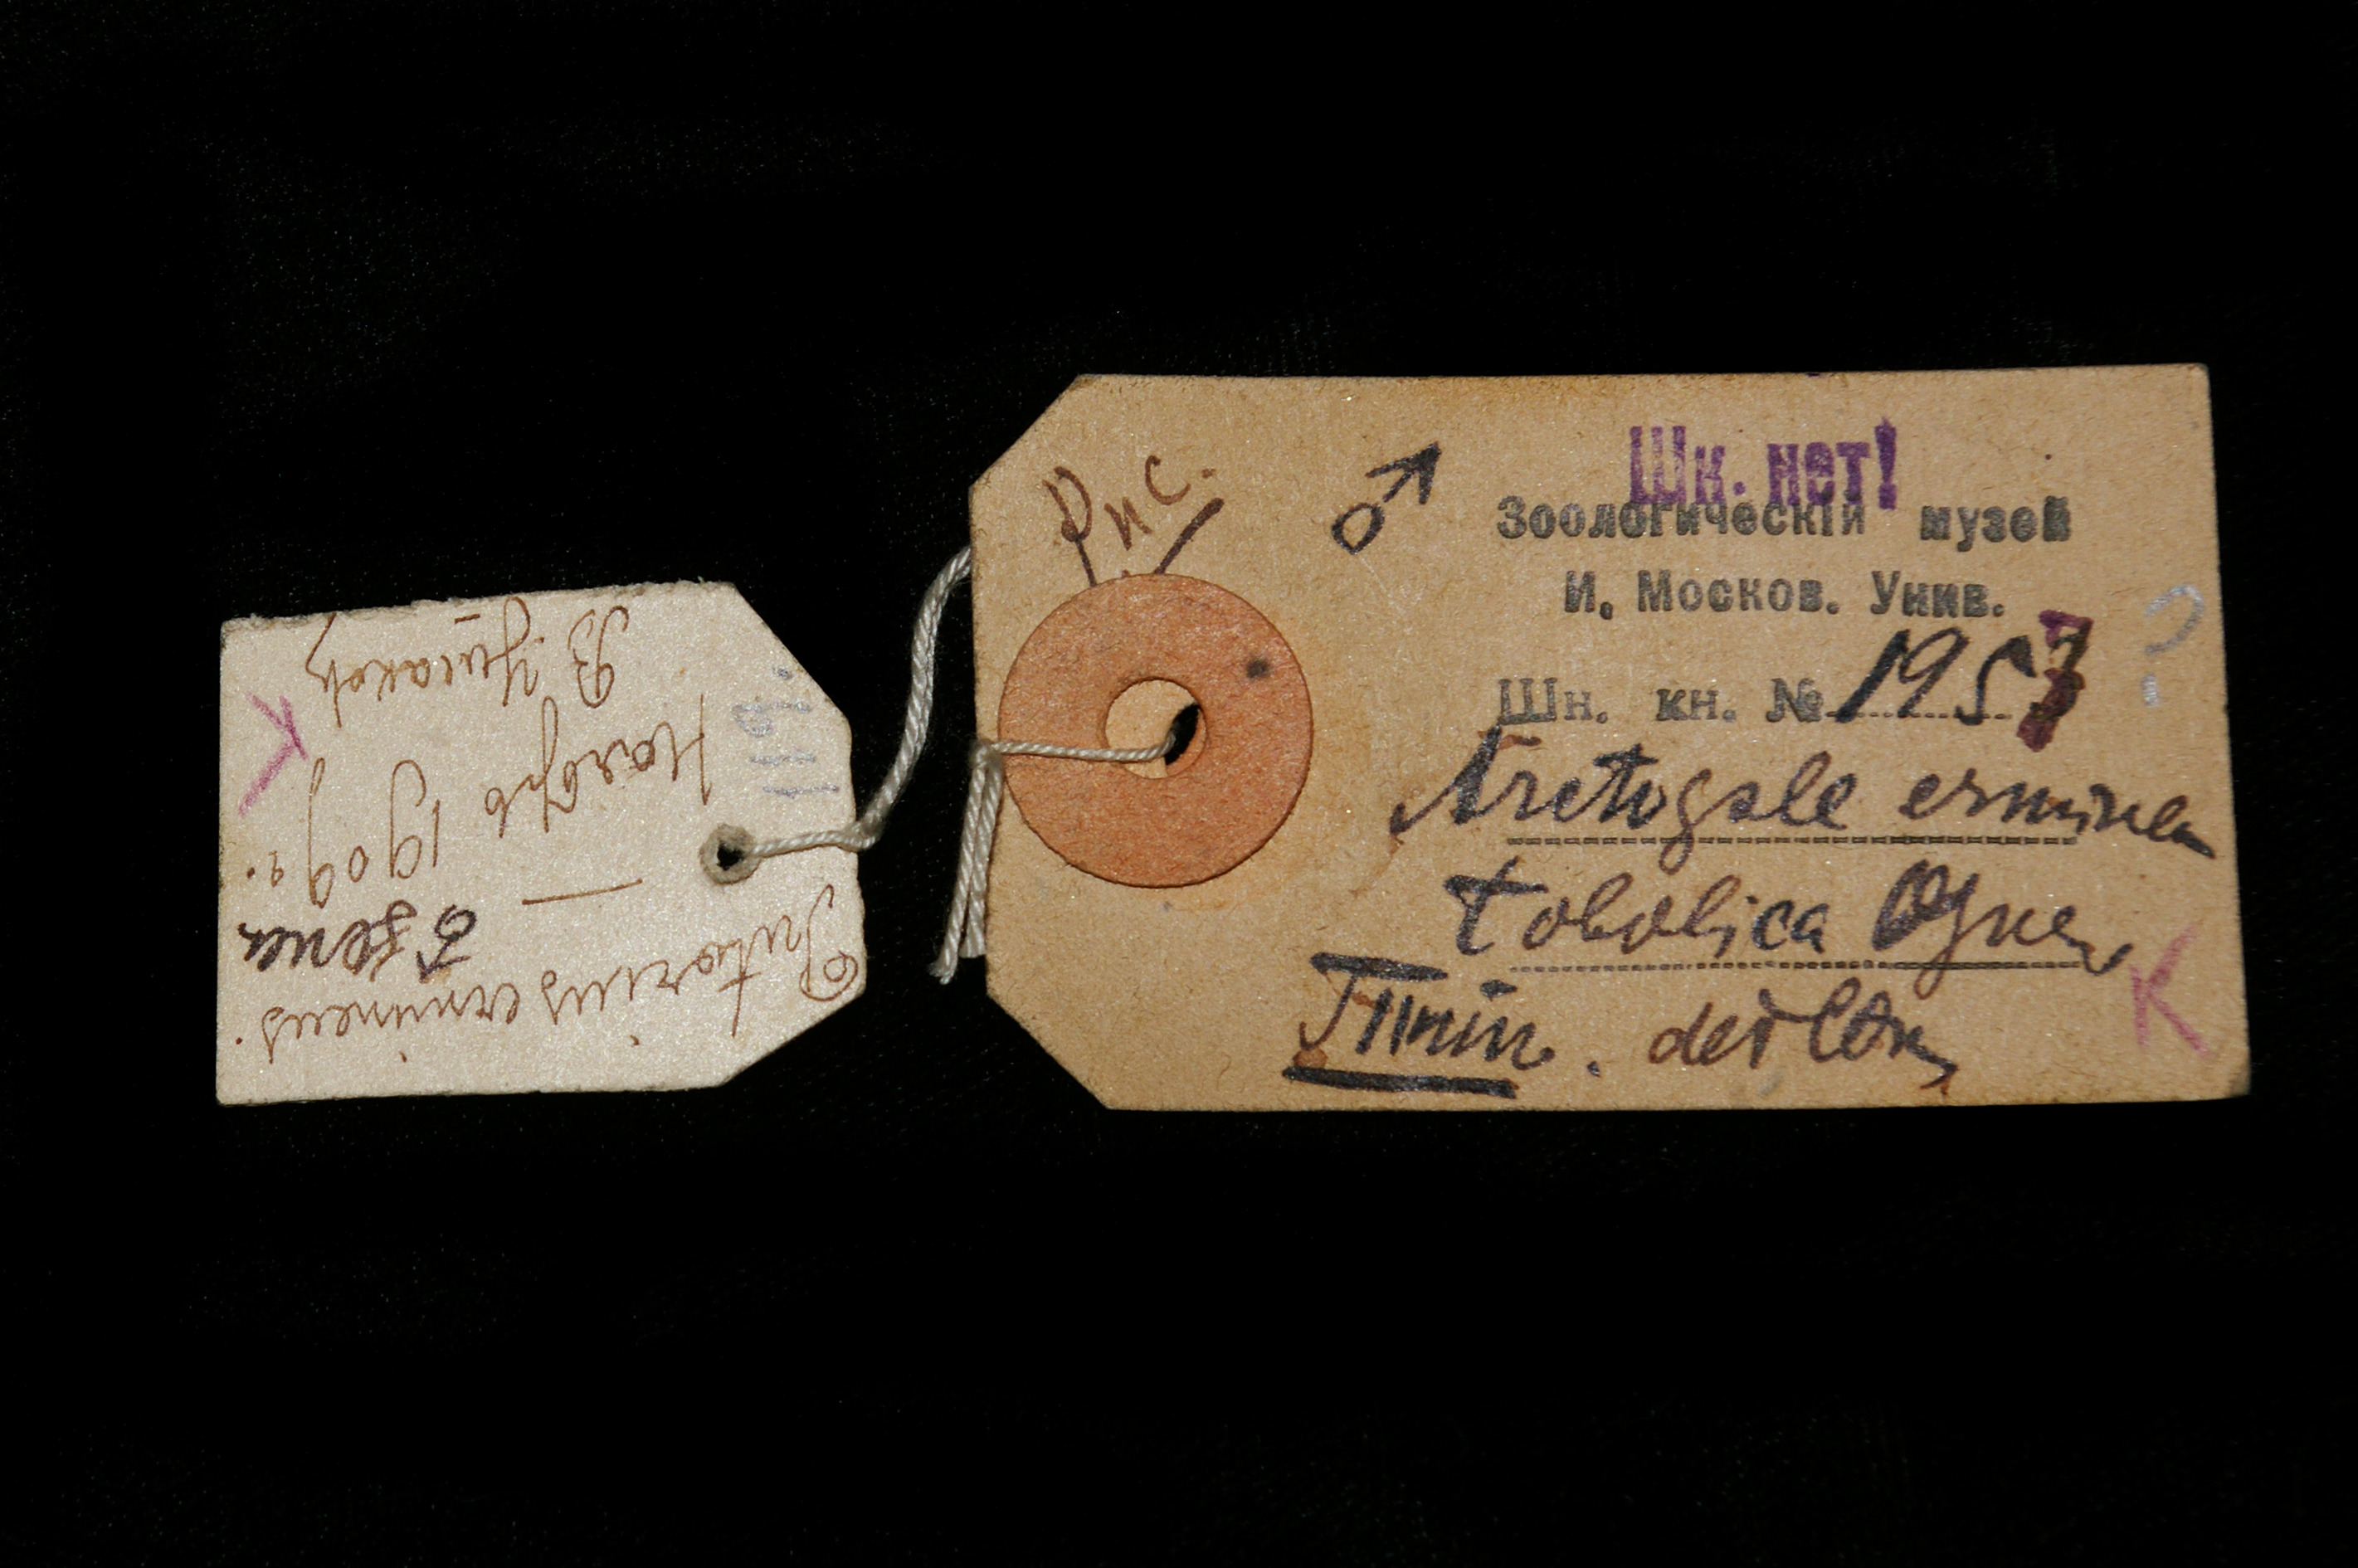 Рис.
♂
Шк. нет!
Зоологическій музей
И. Москов. Унив.
Шк. кн. № 1957
Arctogale erminea
tobolica Ognev
Тип. det Ogn
?
K
Putorius ermineus.
Ноябрь 1909 г.
В. Ушаков
1119.
K